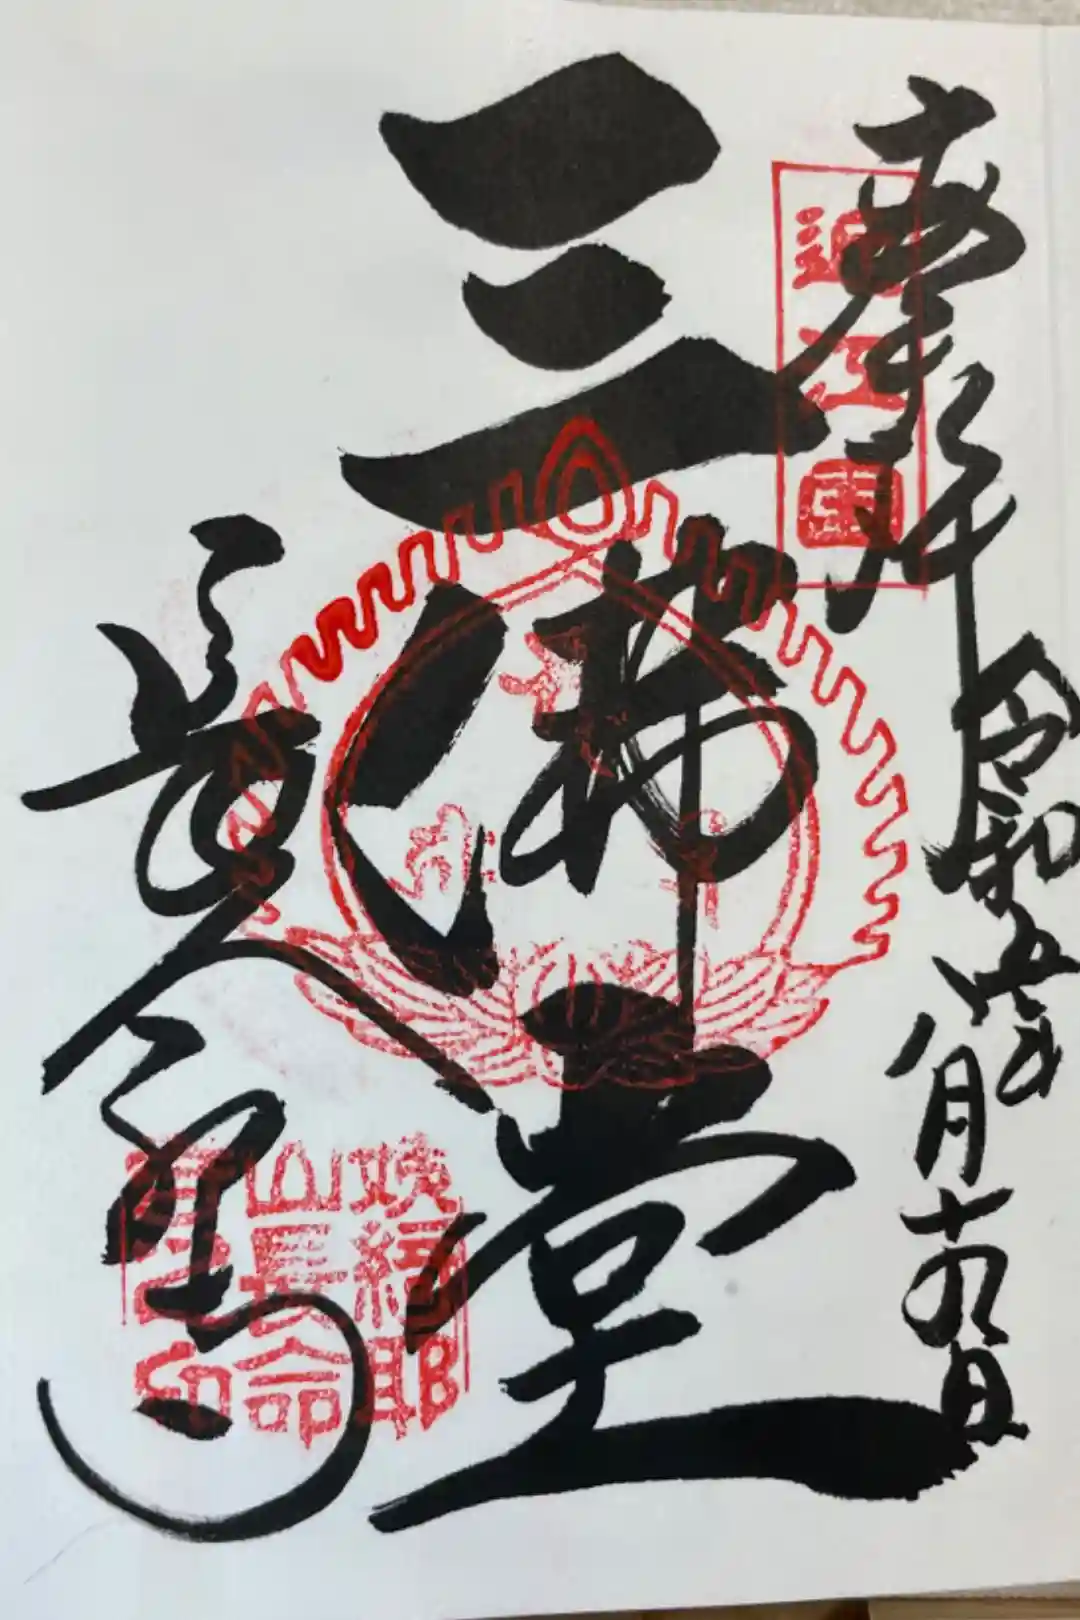 奉拝
令和五年
八月十九日
近江国
三佛堂
長命寺
姨綺耶
山長命
寺之印